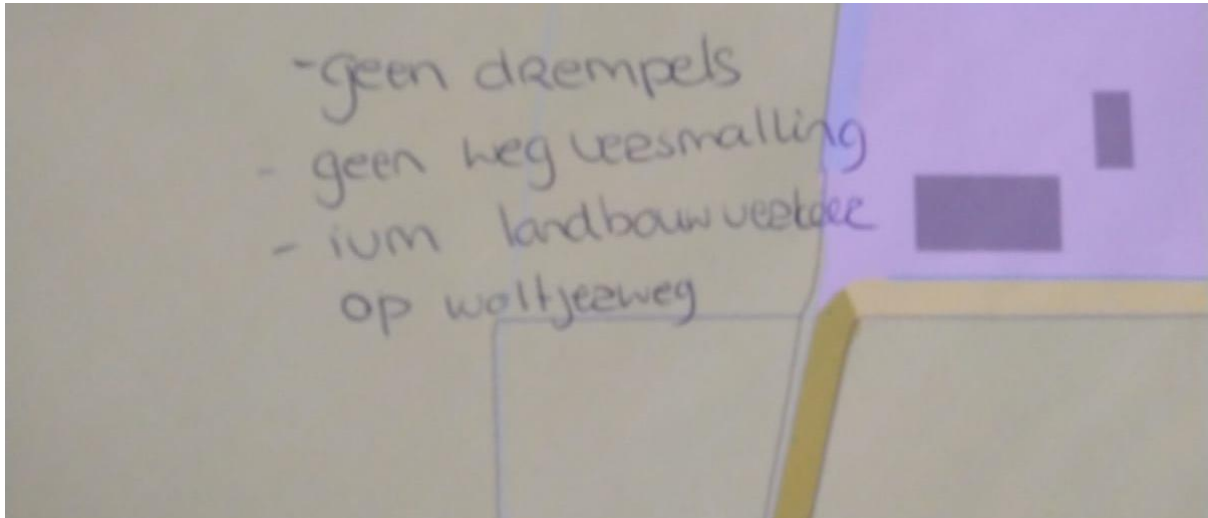 - geen drempels
- geen weg versmalling
- ivm landbouwverkeer
op woltjerweg